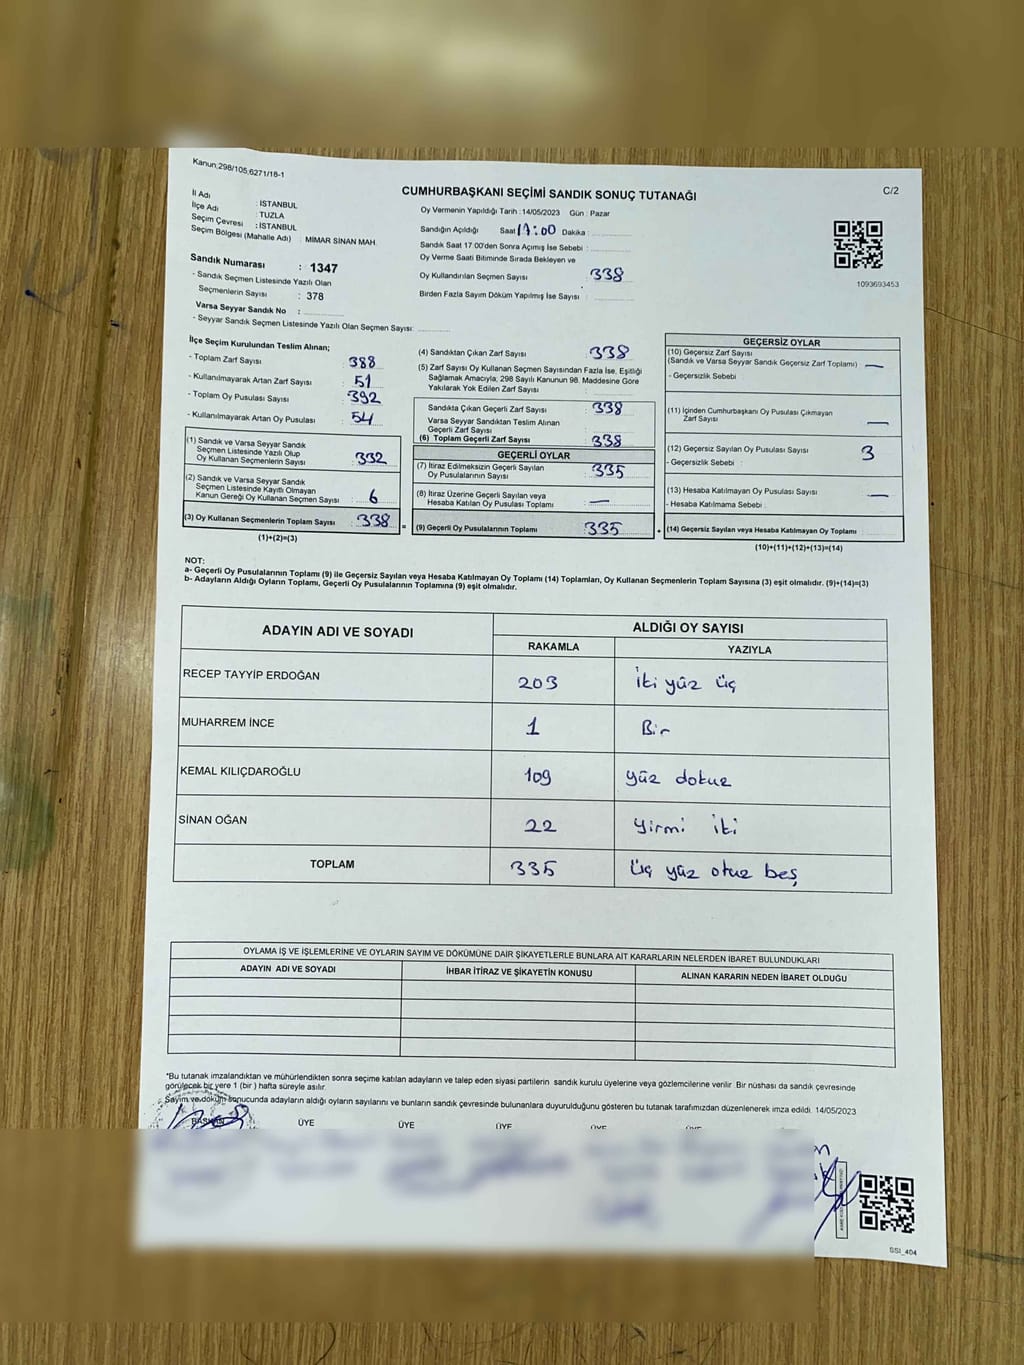 Kanun;298/105,6271/18-1
CUMHURBAŞKANI SEÇİMİ SANDIK SONUÇ TUTANAĞI
C/2
İl Adı : İSTANBUL
İlçe Adı : TUZLA
Seçim Çevresi : İSTANBUL
Seçim Bölgesi (Mahalle Adı) : MİMAR SİNAN MAH.
Sandık Numarası : 1347
- Sandık Seçmen Listesinde Yazılı Olan
Seçmenlerin Sayısı : 378
Varsa Seyyar Sandık No :
- Seyyar Sandık Seçmen Listesinde Yazılı Olan Seçmen Sayısı:
Oy Vermenin Yapıldığı Tarih : 14/05/2023 Gün : Pazar
Sandığın Açıldığı Saat 17:00 Dakika :
Sandık Saat 17.00'den Sonra Açımış İse Sebebi :
Oy Verme Saati Bitiminde Sırada Bekleyen ve
Oy Kullandırılan Seçmen Sayısı : 338
Birden Fazla Sayım Döküm Yapılmış İse Sayısı :
1093693453
İlçe Seçim Kurulundan Teslim Alınan;
- Toplam Zarf Sayısı : 388
- Kullanılmayarak Artan Zarf Sayısı : 51
- Toplam Oy Pusulası Sayısı : 392
- Kullanılmayarak Artan Oy Pusulası : 54
(1) Sandık ve Varsa Seyyar Sandık
Seçmen Listesinde Yazılı Olup
Oy Kullanan Seçmenlerin Sayısı : 332
(2) Sandık ve Varsa Seyyar Sandık
Seçmen Listesinde Kayıtlı Olmayan
Kanun Gereği Oy Kullanan Seçmen Sayısı : 6
(3) Oy Kullanan Seçmenlerin Toplam Sayısı : 338 =
(1)+(2)=(3)
(4) Sandıktan Çıkan Zarf Sayısı : 338
(5) Zarf Sayısı Oy Kullanan Seçmen Sayısından Fazla İse, Eşitliği
Sağlamak Amacıyla; 298 Sayılı Kanunun 98. Maddesine Göre
Yakılarak Yok Edilen Zarf Sayısı :
Sandıkta Çıkan Geçerli Zarf Sayısı : 338
Varsa Seyyar Sandıktan Teslim Alınan
Geçerli Zarf Sayısı :
(6) Toplam Geçerli Zarf Sayısı : 338
GEÇERLİ OYLAR
(7) İtiraz Edilmeksizin Geçerli Sayılan
Oy Pusulalarının Sayısı : 335
(8) İtiraz Üzerine Geçerli Sayılan veya
Hesaba Katılan Oy Pusulası Toplamı : —
(9) Geçerli Oy Pusulalarının Toplamı : 335 +
GEÇERSİZ OYLAR
(10) Geçersiz Zarf Sayısı
(Sandık ve Varsa Seyyar Sandık Geçersiz Zarf Toplamı) : —
- Geçersizlik Sebebi :
(11) İçinden Cumhurbaşkanı Oy Pusulası Çıkmayan
Zarf Sayısı : —
(12) Geçersiz Sayılan Oy Pusulası Sayısı : 3
- Geçersizlik Sebebi :
(13) Hesaba Katılmayan Oy Pusulası Sayısı : —
- Hesaba Katılmama Sebebi :
(14) Geçersiz Sayılan veya Hesaba Katılmayan Oy Toplamı :
(10)+(11)+(12)+(13)=(14)
NOT:
a- Geçerli Oy Pusulalarının Toplamı (9) ile Geçersiz Sayılan veya Hesaba Katılmayan Oy Toplamı (14) Toplamları, Oy Kullanan Seçmenlerin Toplam Sayısına (3) eşit olmalıdır. (9)+(14)=(3)
b- Adayların Aldığı Oyların Toplamı, Geçerli Oy Pusulalarının Toplamına (9) eşit olmalıdır.
ADAYIN ADI VE SOYADI ALDIĞI OY SAYISI
RAKAMLA YAZIYLA
RECEP TAYYİP ERDOĞAN 203 İki yüz üç
MUHARREM İNCE 1 Bir
KEMAL KILIÇDAROĞLU 109 yüz dokuz
SİNAN OĞAN 22 yirmi iki
TOPLAM 335 üç yüz otuz beş
OYLAMA İŞ VE İŞLEMLERİNE VE OYLARIN SAYIM VE DÖKÜMÜNE DAİR ŞİKAYETLERLE BUNLARA AİT KARARLARIN NELERDEN İBARET BULUNDUKLARI
ADAYIN ADI VE SOYADI İHBAR İTİRAZ VE ŞİKAYETİN KONUSU ALINAN KARARIN NEDEN İBARET OLDUĞU
*Bu tutanak imzalandıktan ve mühürlendikten sonra seçime katılan adayların ve talep eden siyasi partilerin sandık kurulu üyelerine veya gözlemcilerine verilir. Bir nüshası da sandık çevresinde
görülecek bir yere 1 (bir ) hafta süreyle asılır.
Sayım ve döküm sonucunda adayların aldığı oyların sayılarını ve bunların sandık çevresinde bulunanlara duyurulduğunu gösteren bu tutanak tarafımızdan düzenlenerek imza edildi. 14/05/2023
BAŞKAN ÜYE ÜYE ÜYE ÜYE ÜYE
SSI_404